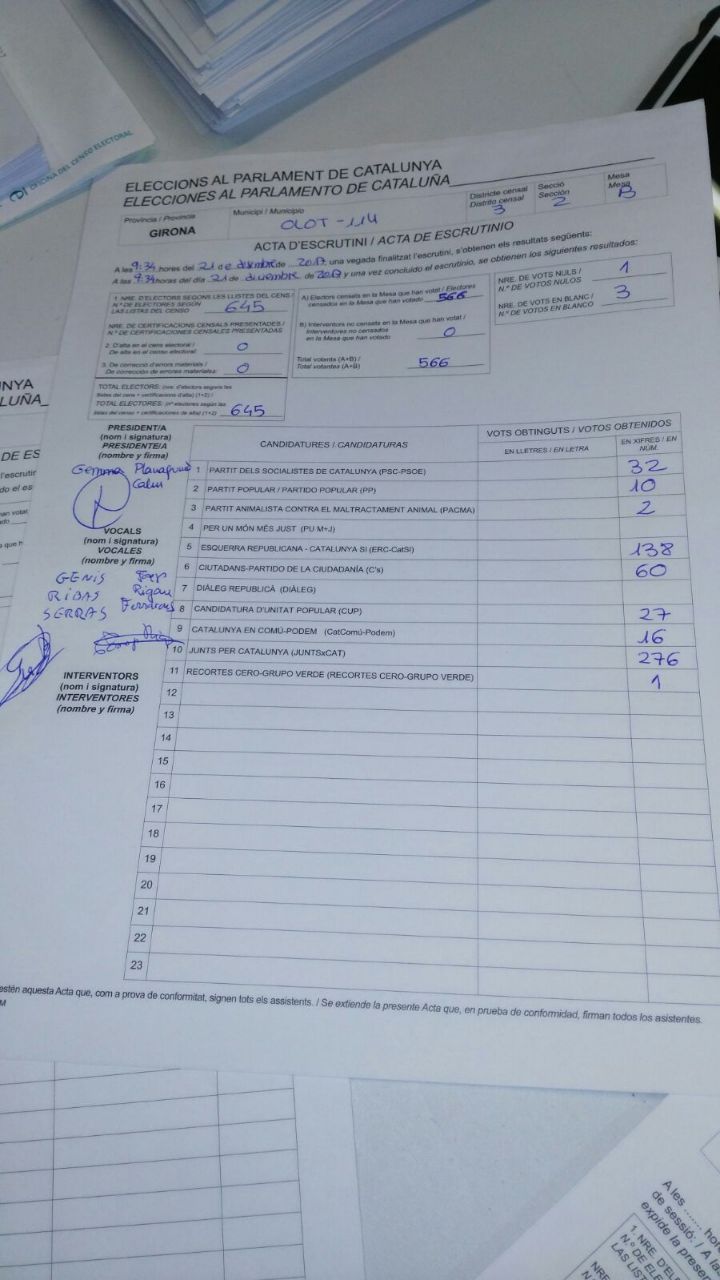 OFICINA DEL CENSO ELECTORAL
ELECCIONS AL PARLAMENT DE CATALUNYA
ELECCIONES AL PARLAMENTO DE CATALUÑA
Província / Provincia
GIRONA
Municipi / Municipio
OLOT - 114
Districte censal
Distrito censal
3
Secció
Sección
2
Mesa
Mesa
B
ACTA D'ESCRUTINI / ACTA DE ESCRUTINIO
A les 9:34 hores del 21 de desembre de 2017, una vegada finalitzat l'escrutini, s'obtenen els resultats següents:
A las 9:34 horas del día 21 de diciembre de 2017 y una vez concluido el escrutinio, se obtienen los siguientes resultados:
1. NRE. D'ELECTORS SEGONS LES LLISTES DEL CENS /
N.º DE ELECTORES SEGÚN
LAS LISTAS DEL CENSO
645
NRE. DE CERTIFICACIONS CENSALS PRESENTADES /
N.º DE CERTIFICACIONES CENSALES PRESENTADAS
2. D'alta en el cens electoral /
De alta en el censo electoral:
0
3. De correcció d'errors materials /
De corrección de errores materiales:
0
TOTAL ELECTORS: (nre. d'electors segons les
llistes del cens + certificacions d'alta) (1+2) /
TOTAL ELECTORES: (nº electores según las
listas del censo + certificaciones de alta) (1+2)
645
A) Electors censats en la Mesa que han votat / Electores
censados en la Mesa que han votado
566
B) Interventors no censats en la Mesa que han votat /
Interventores no censados
en la Mesa que han votado
0
Total votants (A+B) /
Total votantes (A+B)
566
NRE. DE VOTS NULS /
N.º DE VOTOS NULOS
1
NRE. DE VOTS EN BLANC /
N.º DE VOTOS EN BLANCO
3
PRESIDENT/A
(nom i signatura)
PRESIDENTE/A
(nombre y firma)
Gemma
VOCALS
(nom i signatura)
VOCALES
(nombre y firma)
GENÍS
RIBAS Rigau
SERRAS
INTERVENTORS
(nom i signatura)
INTERVENTORES
(nombre y firma)
CANDIDATURES / CANDIDATURAS
VOTS OBTINGUTS / VOTOS OBTENIDOS
EN LLETRES / EN LETRA
EN XIFRES / EN
NÚM.
1 PARTIT DELS SOCIALISTES DE CATALUNYA (PSC-PSOE) 32
2 PARTIT POPULAR / PARTIDO POPULAR (PP) 10
3 PARTIT ANIMALISTA CONTRA EL MALTRACTAMENT ANIMAL (PACMA) 2
4 PER UN MÓN MÉS JUST (PUM+J)
5 ESQUERRA REPUBLICANA - CATALUNYA SÍ (ERC-CatSí) 138
6 CIUTADANS-PARTIDO DE LA CIUDADANÍA (C's) 60
7 DIÀLEG REPUBLICÀ (DIÀLEG)
8 CANDIDATURA D'UNITAT POPULAR (CUP) 27
9 CATALUNYA EN COMÚ-PODEM (CatComú-Podem) 16
10 JUNTS PER CATALUNYA (JUNTSxCAT) 276
11 RECORTES CERO-GRUPO VERDE (RECORTES CERO-GRUPO VERDE) 1
12
13
14
15
16
17
18
19
20
21
22
23
estén aquesta Acta que, com a prova de conformitat, signen tots els assistents. / Se extiende la presente Acta que, en prueba de conformidad, firman todos los asistentes.
A les ........ hor
de sessió: / A la
expide la prese
1. NRE. D'EL
N.º DE ELE
LAS LIST